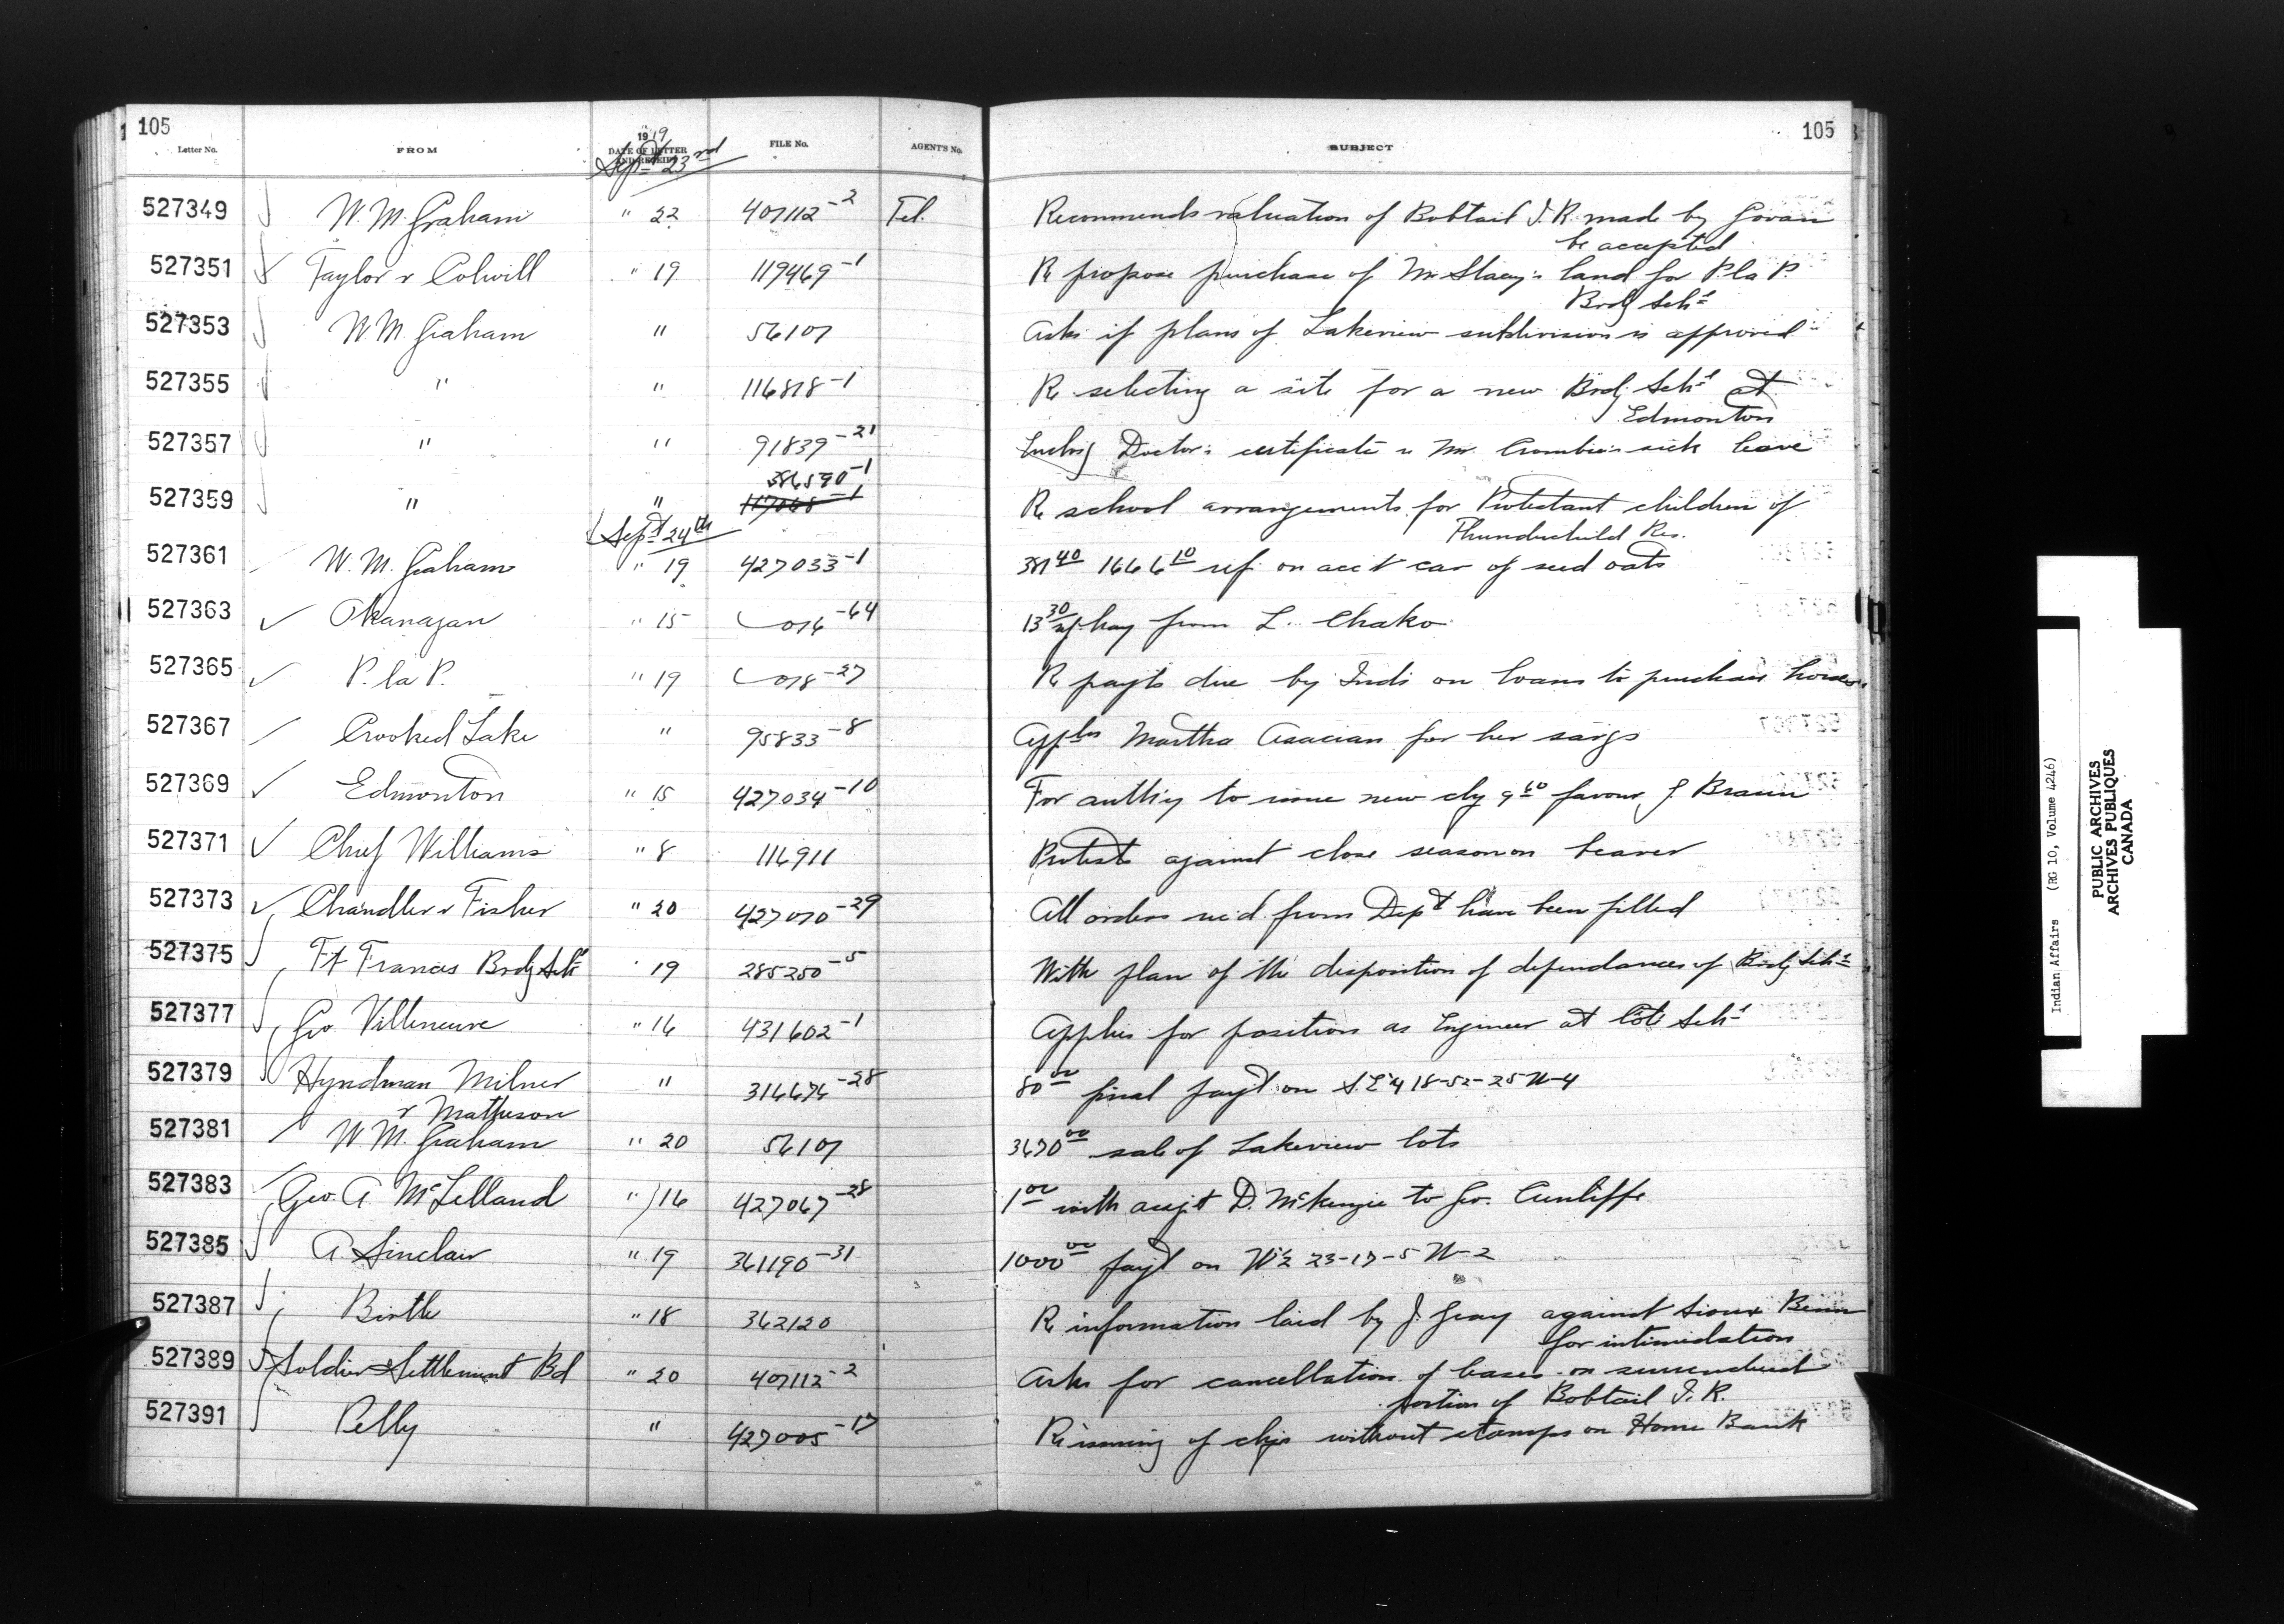 105
105
Letter No. FROM 1919 DATE OF LETTER AND RECEIPT FILE No. AGENT'S No. SUBJECT
Sept 23rd
527349 W. M. Graham " 22 407112-2 Tel. Recommends valuation of Bobtail I. R. made by Govan
be accepted
527351 Taylor & Colwill " 19 119469-1 Re propose purchase of Mr Stacey's land for P. la P.
Brdg Schl
527353 W M Graham " 56107 Asks if plans of Lakeview subdivision is approved
527355 " " 116818-1 Re selecting a site for a new Brdg Schl at
Edmonton
527357 " " 91839-21 Enclosg Doctor's certificate re Mr. Crombie's sick leave
386590-1
527359 " " 117068-1 Re school arrangements for Protestant children of
Thunderchild Res.
Sept 24th
527361 W. M. Graham " 19 427033-1 381.40 1666.10 ref. on acct car of seed oats
527363 Okanagan " 15 016-64 13.30 hay from L. Chako
527365 P. la P. " 19 018-27 Re payts due by Inds on loans to purchase horses
527367 Crooked Lake " 95833-8 Appln Martha Asacian for her savgs
527369 Edmonton " 15 427034-10 For authy to issue new chq 9.60 favour J. Braun
527371 Chief Williams " 8 116911 Protests against close season on beaver
527373 Chandler & Fisher " 20 427070-29 All orders rec'd from Dept have been filled
527375 Ft Francis Brdg Schl " 19 285250-5 With plan of the disposition of dependances of Brdg Schl
527377 Geo. Villeneuve " 16 431602-1 Applies for position as Engineer at Cote Schl
527379 Hyndman Milner " 316674-28 80.00 final payt on S.E¼ 18-52-25 W-4
& Matheson
527381 W. M. Graham " 20 56107 3670.00 sale of Lakeview lots
527383 Geo. A. McLelland " 16 427067-28 1.00 with assgt D. McKenzie to Geo. Cunliffe
527385 A. Sinclair " 19 361190-31 1000.00 payt on W½ 23-17-5 W-2
527387 Birtle " 18 362120 Re information laid by J. Gray against Sioux Benn
for intimidation
527389 Soldier Settlement Bd " 20 407112-2 Asks for cancellation of leases on surrendered
portion of Bobtail I. R.
527391 Pelly " 427005-17 Re issuing of chqs without stamps on Home Bank
Indian Affairs (RG 10, Volume 4246)
PUBLIC ARCHIVES
ARCHIVES PUBLIQUES
CANADA